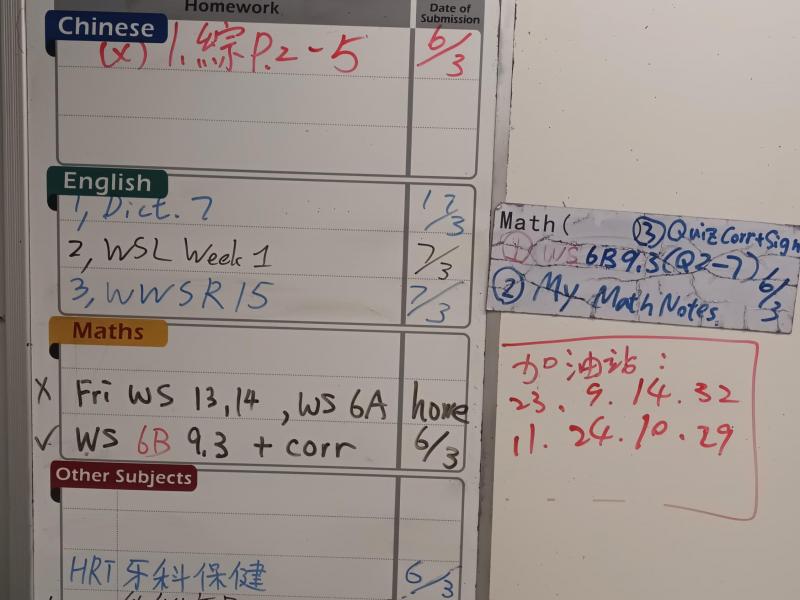 Homework
Date of Submission
Chinese
(x) 1.綜P.2-5 6/3
English
1, Dict. 7 12/3
2, WSL Week 1 7/3
3, WWSR 15 7/3
Maths
x Fri WS 13,14 , WS 6A home
✓ WS 6B 9.3 + corr 6/3
Other Subjects
HRT 牙科保健 6/3
Math( ③ Quiz Corr+Sign
① WS 6B 9.3(Q2-7) 6/3
② My Math Notes
加油站:
23. 9. 14. 32
11. 24. 10. 29